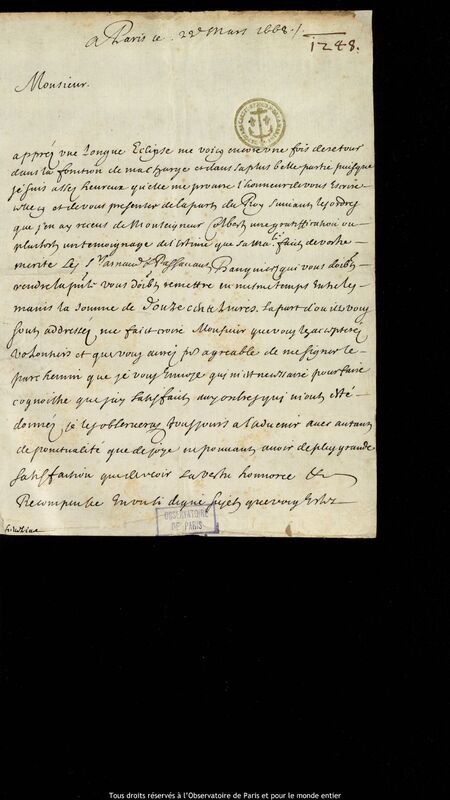 A Paris ce 22e Mars 1668./.
1248.
Monsieur.
apprez vne longue Eclipse me voicy encore vne fois de retour
dans la fonction de ma charge et dans sa plus belle partie puisque
je suis assez heureux qu'elle me procure l'honneur de vous Escrire
et de vous presenter de la part du Roy suiuant les ordres
que j'en ay receus de Monseigneur Colbert vne gratiffication ou
plustost vn temoignage de l'estime que sa Maté. fait de vostre
merite Les Srs
Banquiers qui vous doibt
rendre la pnte. vous doibt remettre en mesme temps Entre les
mains la somme de Douze cents liures. La part d'ou ils vous
sont addressez me fait croire Monsieur que vous les accepterez
volontiers et que vous aurez pr agreable de me signer le
parchemin que je vous Enuoye qui m'est necessaire pour faire
cognoistre que j'ay satisfait aux ordres qui m'ont esté
donnez je les obserueray tousjours a l'aduenir auec autant
de ponctualité que de joye ne pouuant auoir de plus grande
satisfaction que de veoir la vertu honnorée Et
Recompensée En vn si digne sujet que vous Estes
OBSERVATOIRE
DE PARIS
Tous droits réservés à l'Observatoire de Paris et pour le monde entier